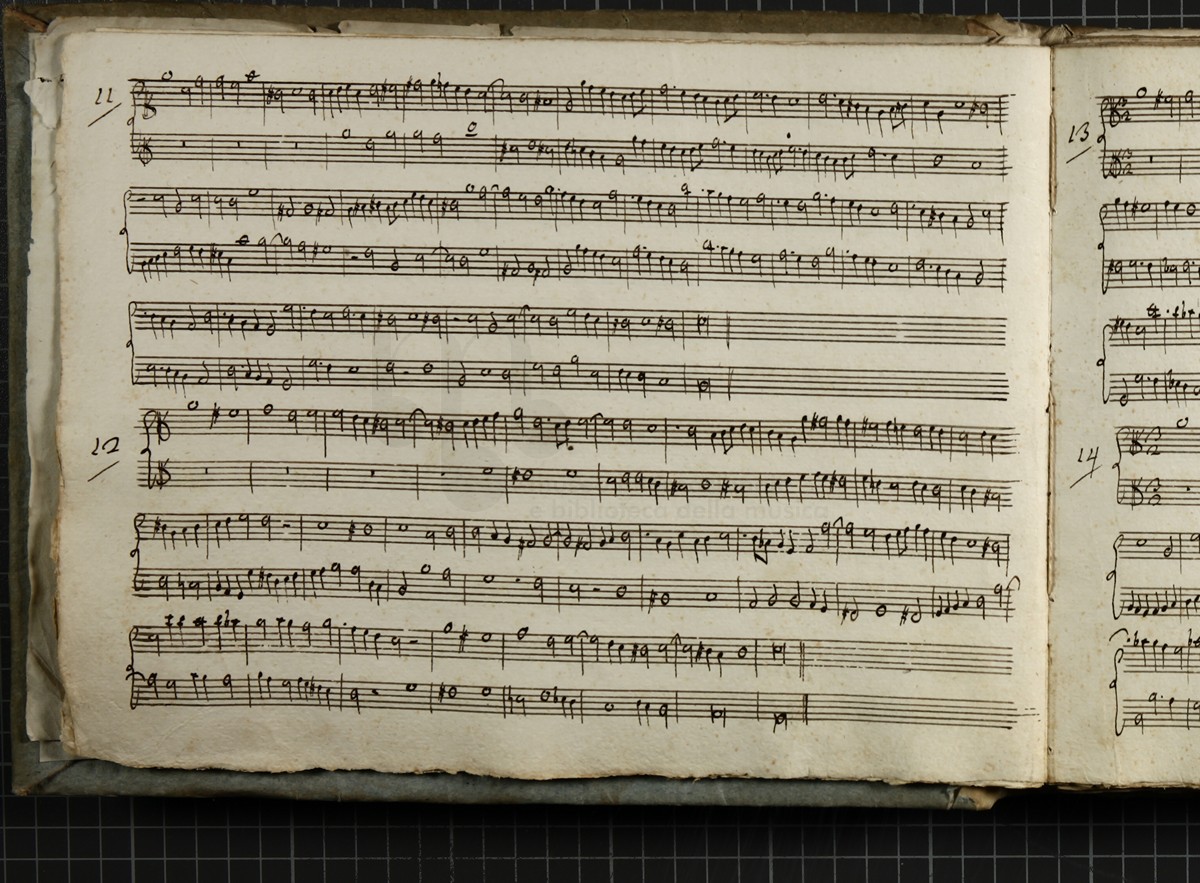 11
12
e biblioteca della musica
13
14